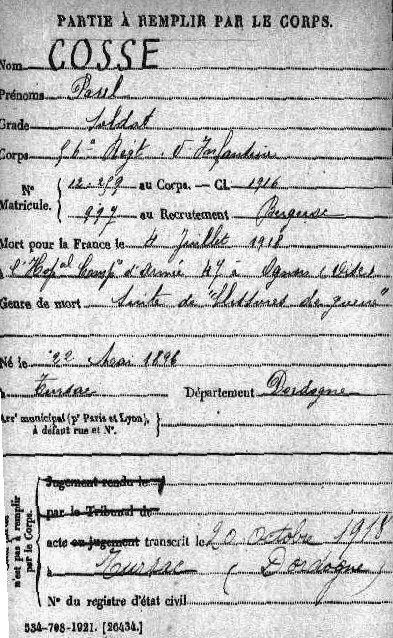 PARTIE À REMPLIR PAR LE CORPS.
Nom COSSE
Prénoms Paul
Grade Soldat
Corps Régt. d'Infanterie
N° Matricule. { 12.259 au Corps. — Cl. 1916
997 au Recrutement Bergerac
Mort pour la France le 4 Juillet 1918
à l'Hopal Campe d'Armée 47 à Ognon (Oise)
Genre de mort Suite de "Blessures de guerre"
Né le 22 Mai 1896
à Tursac Département Dordogne
Arrt municipal (pr Paris et Lyon), à défaut rue et N°.
n'est pas à remplir par le Corps.
Jugement rendu le
par le Tribunal de
acte ou jugement transcrit le 20 octobre 1918
à Tursac (Dordogne)
N° du registre d'état civil
534-708-1921. [26434.]